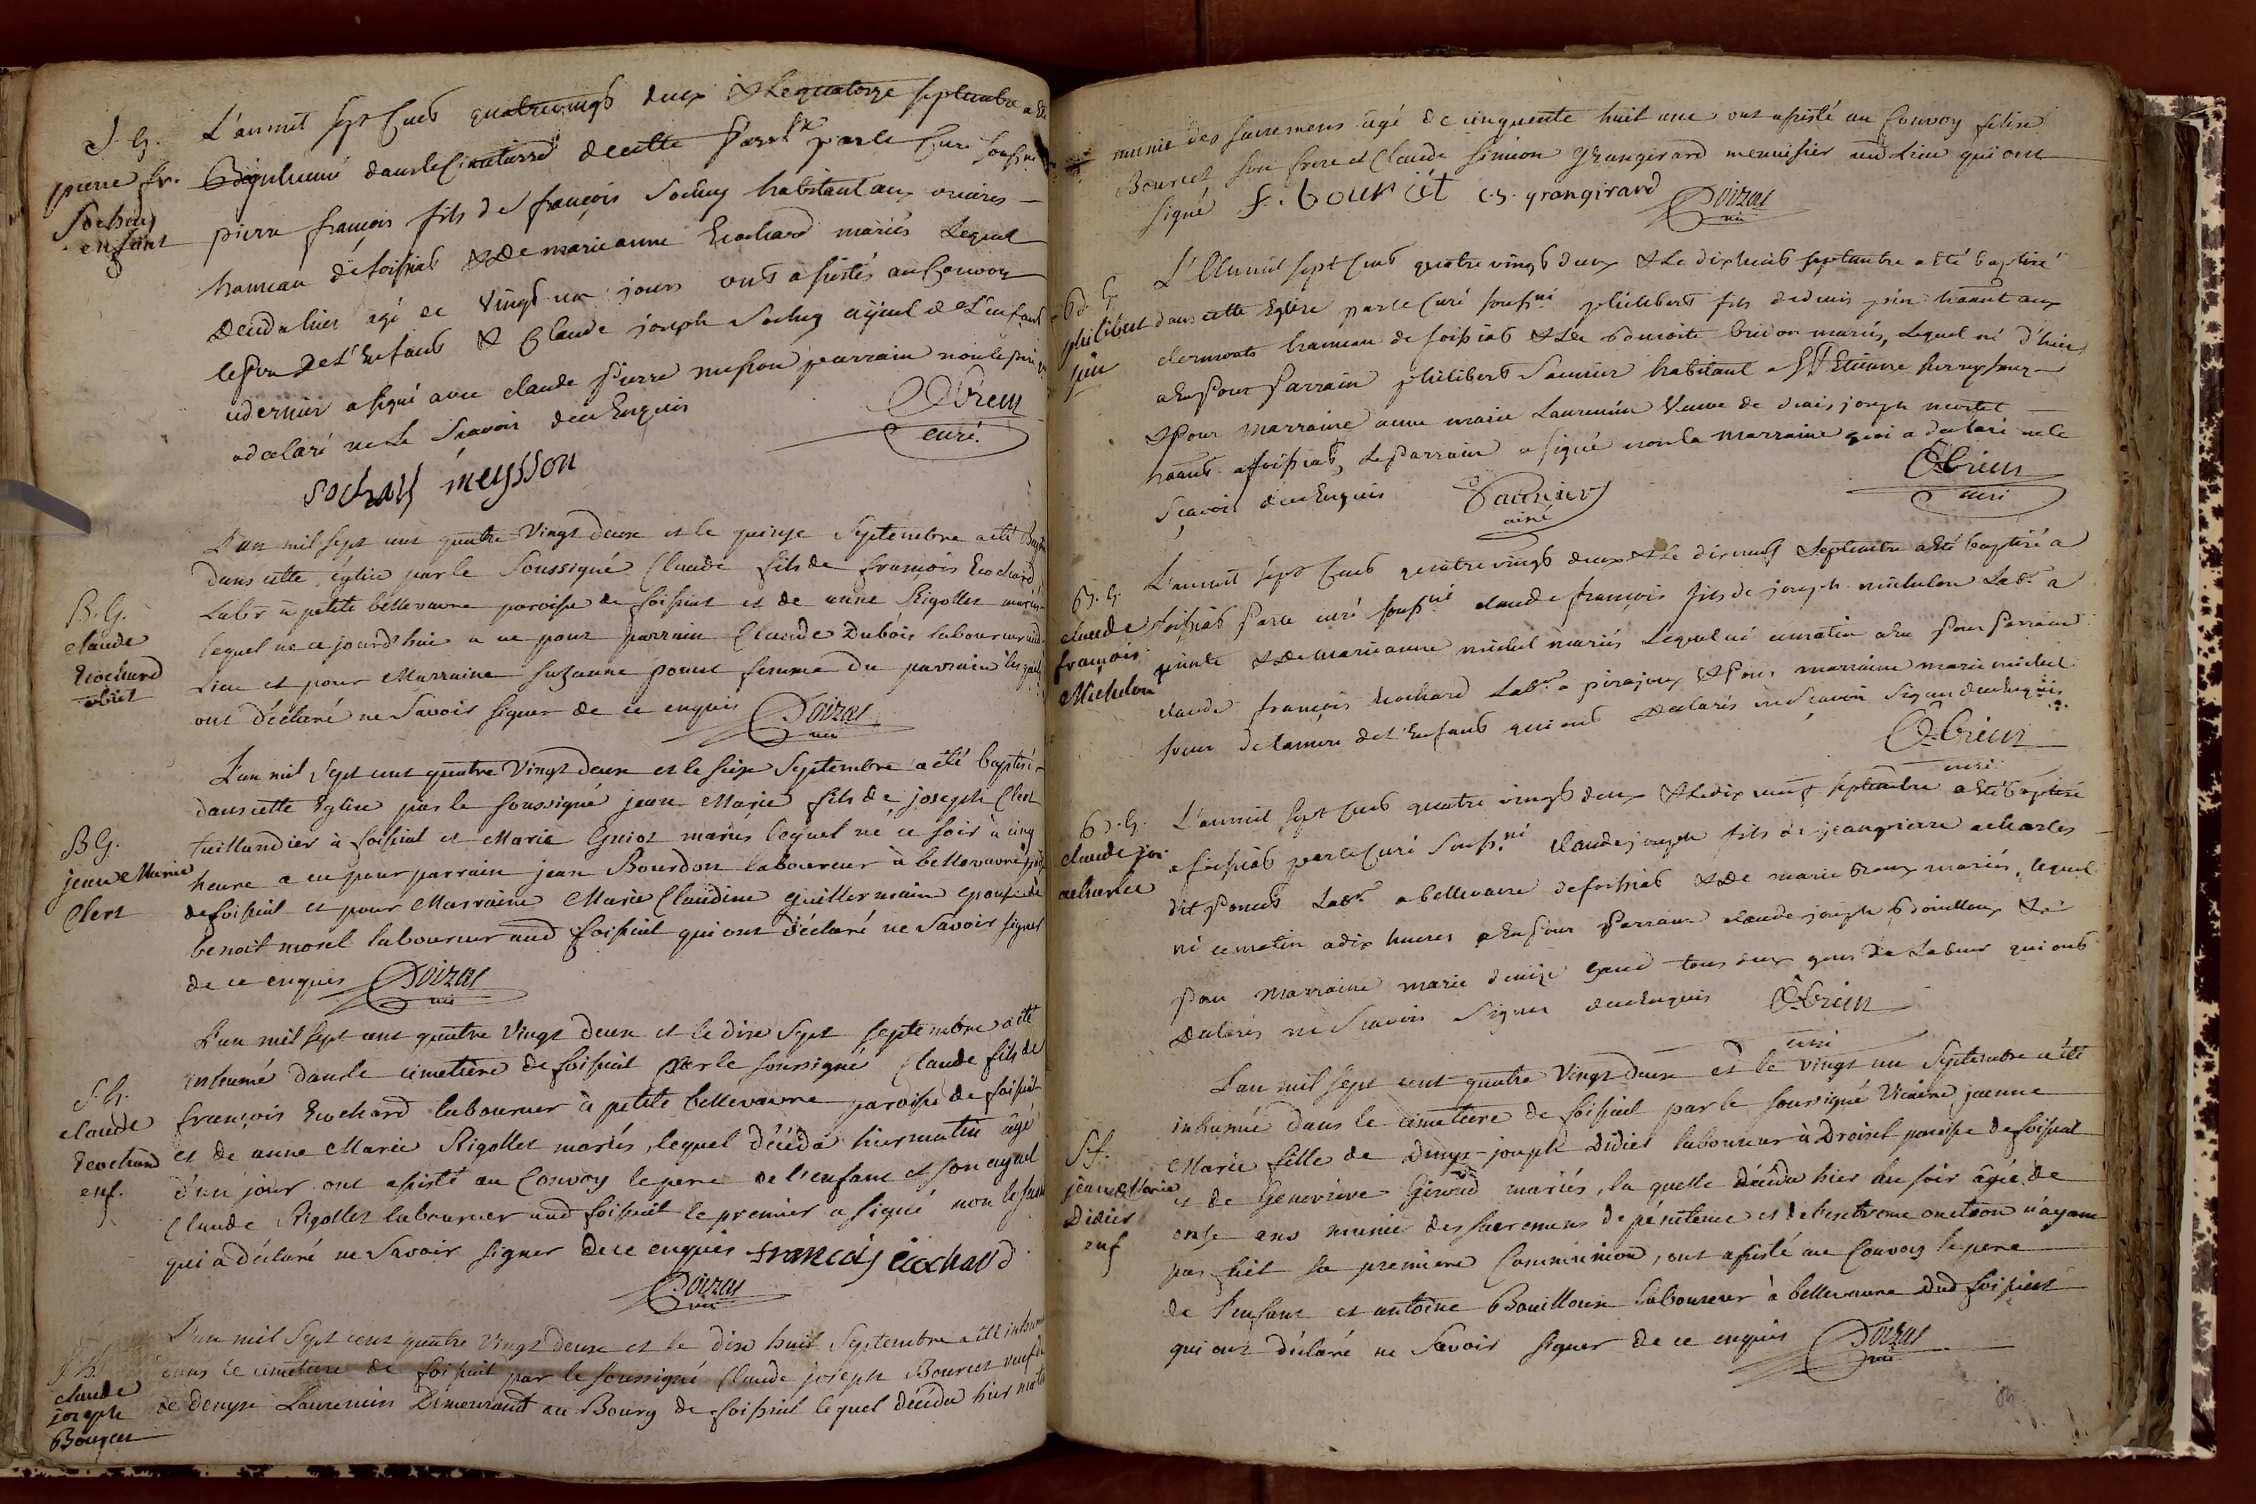 S. G.
pierre fr.
Sochay
enfant
L'anmil sept Cent quatrevingt deux & le quatorze septembre a été
inhumé dans le Cimetierre de cette Parsse par le Curé souss.né
pierre françois fils de françois Sochay habitant aux
hameau de foissiat & de marieanne Ecochard mariés Lequel
agé de vingt un jours ont assistés au Convoy
le Pere de L'Enfant & Claude joseph Sochay ayeul de L'enfant
a signé avec claude Pierre messon parrain non le pere
a declaré ne Le Scavoir de ce Enquis
Obrien
curé
sochay meysson
B. G.
claude
Ecochard
obiit
L'an mil sept cent quatre Vingt deux et le quinze Septembre a été
dans cette église par le Soussigné Claude fils de françois Ecochard
Labr à petite bellevavre paroisse de foissiat et de anne Rigollet mariés
lequel né ce jourd'hui a eu pour parrain Claude Dubois laboureur aud
Lieu et pour Marraine suzanne poncet femme du parrain lesquels
ont déclaré ne Savoir signer de ce enquis Doizat
vic
B G.
jean Marie
Clert
L'an mil Sept cent quatre Vingt deux et le seize Septembre a été baptisé
dans cette Eglise par le soussigné jean Marie fils de joseph Clert
taillandier à foissiat et Marie Guiot mariés lequel né ce soir à cinq
heure a eu pour parrain jean Bourdon laboureur à bellevavre
de foissiat et pour Marraine Marie Claudine Guillermain epouse de
benoit morel laboureur aud foissiat qui ont déclaré ne Savoir signer
de ce enquis Doizat
vic
S. G.
claude
Ecochard
enf.
L'an mil sept cent quatre Vingt deux et le dix Sept septembre a été
inhumé dans le cimetiere de foissiat par le soussigné Claude fils de
françois Ecochard laboureur à petite bellevavre paroisse de foissiat
et de anne Marie Rigollet mariés, lequel décéda hier matin âgé
d'un jour ont assisté au Convoy le pere de l'enfant et son ayeul
Claude Rigollet laboureur aud foissiat le premier a signé non le
qui a déclaré ne Savoir signer de ce enquis francois ecochard
Doizat
vic
claude
joseph
Bourcet
L'an mil Sept cent quatre Vingt deux et le dix huit Septembre a été inhumé
dans le cimetiere de foissiat par le soussigné Claude joseph Bourcet veuf
de denyse Laurencin Demeurant au Bourg de foissiat lequel décéda hier matin
munie des sacremens âgé de cinquante huit ans ont assisté au Convoy felix
Bourcet son frere et Claude simeon grangirard menuisier aud Lieu qui ont
signé f. bourcet c. s. grangirard Doizat
vic
B. G.
philibert
L'Anmil sept Cent quatre vingt deux & Le dixhuit septembre a été baptisé
dans cette Eglise par le Curé souss.né philibert fils de denis habitant aux
clermonts hameau de foissiat & de benoite bridon mariés, Lequel né d'hier
a Eu Pour Parrain philibert Saunier habitant a St Etienne
& Pour Marraine anne marie Laurencin Veuve de joseph mortel
habitante a foissiat, Le Parrain a signé non la Marraine qui a declaré ne le
Scavoir de ce Enquis Saunier
ainé
Obrien
curé
B. G.
claude
françois
Michelon
L'anmil sept Cent quatre vingt deux & Le dix neuf Septembre a Eté baptisé a
foissiat Par le curé souss.né claude françois fils de joseph michelon Labr. a
& de marieanne michel mariés Lequel né ce matin a Eu Pour Parrain
claude françois Ecochard Labr. a pirajoux & Pour marraine marie michel
soeur de la mere de L'Enfant qui ont Declarés ne Scavoir Signer de ce Enquis
Obrien
curé
B. G.
claude jos.
acharles
L'anmil sept Cent quatre vingt deux & Le dix neuf septembre a Eté baptisé
a foissiat par le Curé Souss.né claude joseph fils de jean pierre acharles
dit Poncet Labr. a bellevavre de foissiat & De marie mariés, lequel
né ce matin a dix heures a Eu Pour Parrain claude joseph bouilloux &
Pour Marraine marie denise tous deux gens de Labeur qui ont
Declarés ne Scavoir Signer de ce Enquis Obrien
curé
S. f.
jeanne Marie
Didier
enf
L'an mil sept cent quatre Vingt deux et le vingt un Septembre a été
inhumée dans le cimetiere de foissiat par le soussigné Vicaire jeanne
Marie fille de Denys-joseph Didier laboureur à paroisse de foissiat
et de Genevieve Giroud mariés, la quelle décéda hier au soir âgée de
onze ans munie des sacremens de pénitence et de l'extreme onction n'ayant
pas fait sa premiere Communion, ont assisté au Convoy le pere
de l'enfant et antoine Bouilloux laboureur à bellevavre dud foissiat
qui ont déclaré ne Savoir signer de ce enquis Doizat
vic